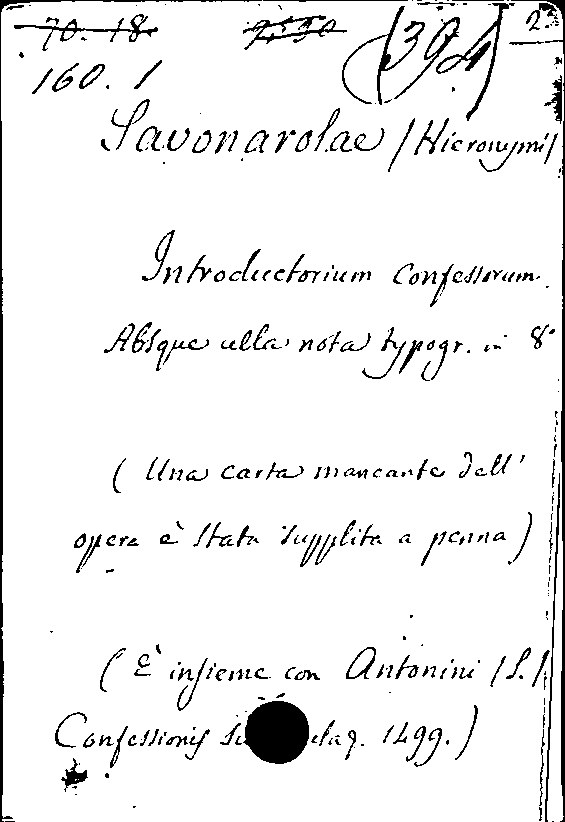 70. 18.
(394)
160. 1
Savonarolae /Hieronymi/
Introductorium Confessorum.
Absque ulla nota typogr. in 8°
( Una carta mancante dell'
opera è stata supplita a penna )
( È insieme con Antonini /S./
Confessionis 1499. )